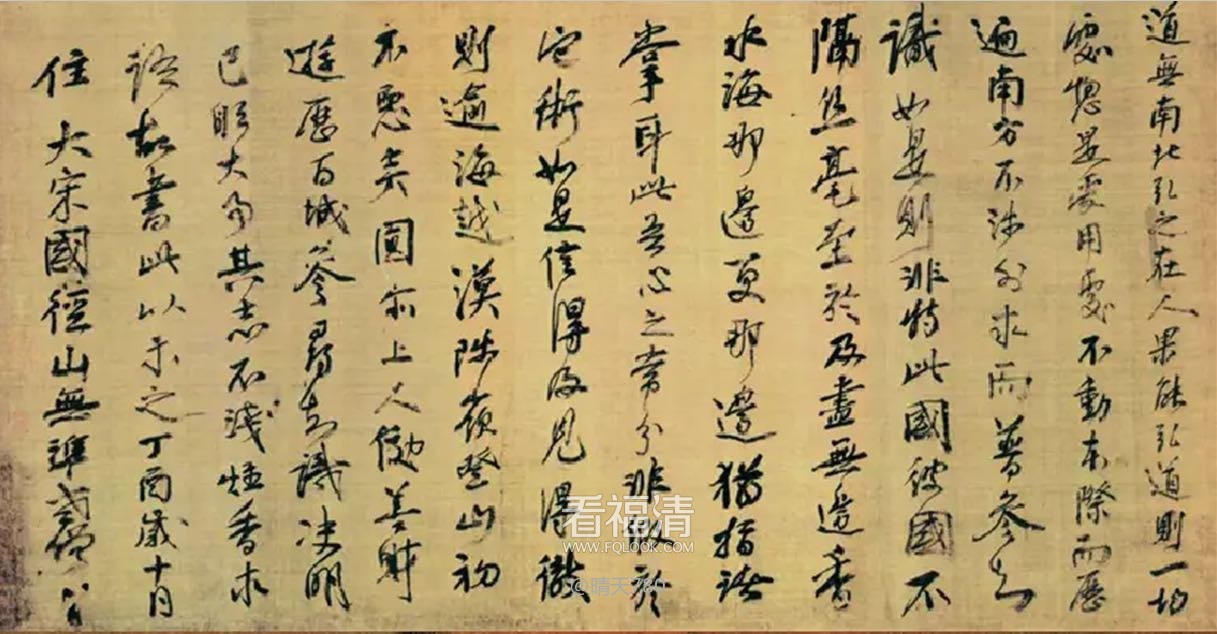 道無南北弘之在人果能弘道則一切
處惣是受用處不動本際而歷
遍南方不涉外求而普參知
識如是則非特此國彼國不
隔絲毫至於及盡無邊香
水海那邊更那邊猶指諸
掌耳此吾心之常分非假於
它術如是信得及見得徹
則逾海越漠陟嶺登山初
不惡矣圓尒上人俲善財
遊歷百城參尋知識決明
己躬大事其志不淺炷香求
語故書此以示之丁酉歲十月
住大宋國徑山無準
看福清
WWW.FQLOOK.COM